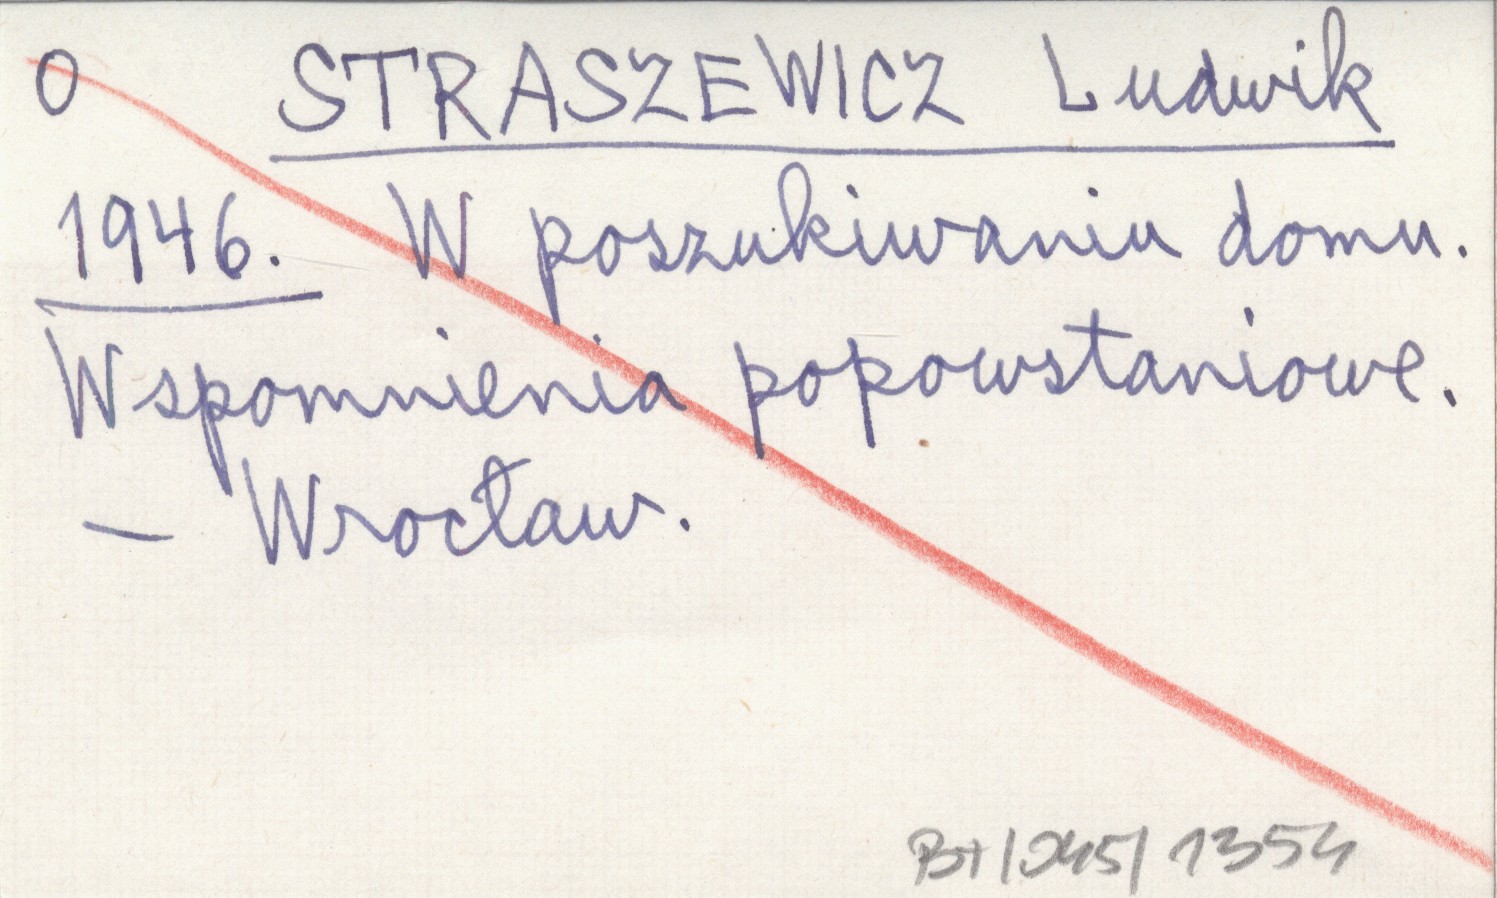 O STRASZEWICZ Ludwik
1946. W poszukiwaniu domu.
Wspomnienia popowstaniowe.
— Wrocław.
1354